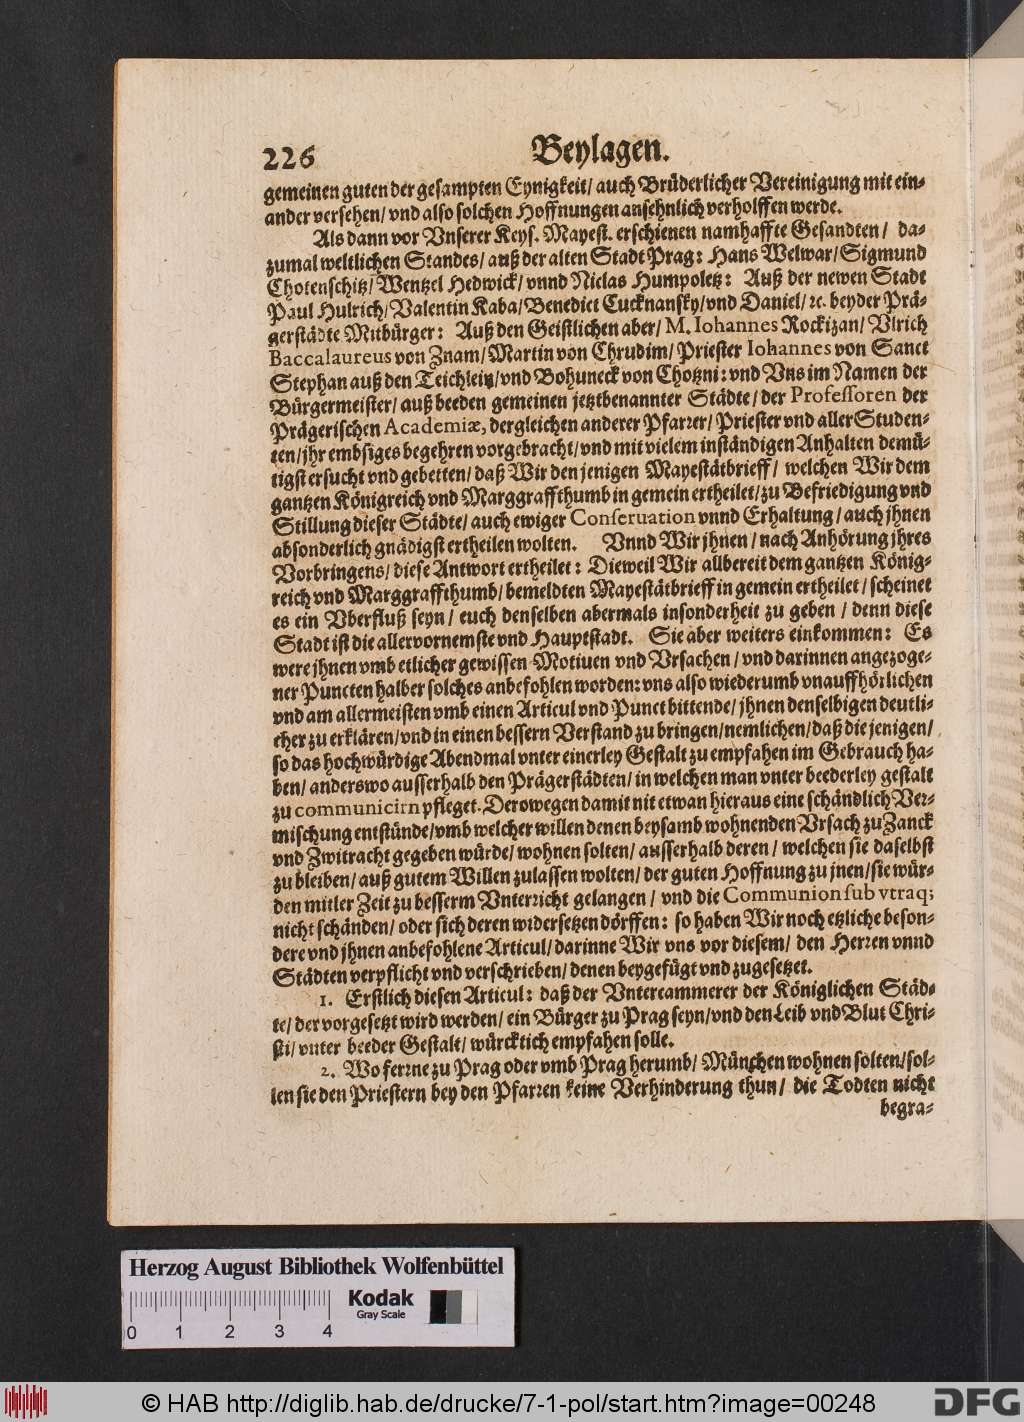 226 Beylagen.
gemeinen guten der gesampten Eynigkeit/ auch Brüderlicher Vereinigung mit ein-
ander versehen/ vnd also solchen Hoffnungen ansehnlich verholffen werde.
Als dann vor Vnserer Keys. Mayest. erschienen namhaffte Gesandten/ da-
zumal weltlichen Standes/ auß der alten Stadt Prag: Hans Welwar/ Sigmund
Chotenschitz/ Wentzel Hedwick/ vnnd Niclas Humpoletz: Auß der newen Stadt
Paul Hulrich/ Valentin Kaba/ Benedict Cucknansky/ vnd Daniel/ ꝛc. beyder Prä-
gerstädte Mitbürger: Auß den Geistlichen aber/ M. Iohannes Rockizan/ Vlrich
Baccalaureus von Znam/ Martin von Chrudim/ Priester Iohannes von Sanct
Stephan auß den Teichleitz/ vnd Bohuneck von Chotzni: vnd Vns im Namen der
Bürgermeister/ auß beeden gemeinen jetztbenannter Städte/ der Professoren der
Prägerischen Academiæ, dergleichen anderer Pfarrer/ Priester vnd aller Studen-
ten/ jhr embsiges begehren vorgebracht/ vnd mit vielem inständigen Anhalten demü-
tigst ersucht vnd gebetten/ daß Wir den jenigen Mayestätbrieff/ welchen Wir dem
gantzen Königreich vnd Marggraffthumb in gemein ertheilet/ zu Befriedigung vnd
Stillung dieser Städte/ auch ewiger Conseruation vnnd Erhaltung/ auch jhnen
absonderlich gnädigst ertheilen wolten. Vnnd Wir jhnen/ nach Anhörung jhres
Vorbringens/ diese Antwort ertheilet: Dieweil Wir allbereit dem gantzen König-
reich vnd Marggraffthumb/ bemeldten Mayestätbrieff in gemein ertheilet/ scheinet
es ein Vberfluß seyn/ euch denselben abermals insonderheit zu geben/ denn diese
Stadt ist die allervornemste vnd Hauptstadt. Sie aber weiters einkommen: Es
were jhnen vmb etlicher gewissen Motiuen vnd Vrsachen/ vnd darinnen angezoge-
ner Puncten halber solches anbefohlen worden: vns also wiederumb vnauffhörlichen
vnd am allermeisten vmb einen Articul vnd Punct bittende/ jhnen denselbigen deutli-
cher zu erklären/ vnd in einen bessern Verstand zu bringen/ nemlichen/ daß die jenigen/
so das hochwürdige Abendmal vnter einerley Gestalt zu empfahen im Gebrauch ha-
ben/ anderswo ausserhalb den Prägerstädten/ in welchen man vnter beederley gestalt
zu communicirn pfleget. Derowegen damit nit etwan hieraus eine schändlich Ver-
mischung entstünde/ vmb welcher willen denen beysamb wohnenden Vrsach zu Zanck
vnd Zwitracht gegeben würde/ wohnen solten/ ausserhalb deren/ welchen sie daselbst
zu bleiben/ auß gutem Willen zulassen wolten/ der guten Hoffnung zu jnen/ sie wür-
den mitler Zeit zu besserm Vnterricht gelangen/ vnd die Communion sub vtraq;
nicht schänden/ oder sich deren widersetzen dörffen: so haben Wir noch etzliche beson-
dere vnd jhnen anbefohlene Articul/ darinne Wir vns vor diesem/ den Herren vnnd
Städten verpflicht vnd verschrieben/ denen beygefügt vnd zugesetzet.
1. Erstlich diesen Articul: daß der Vntercammerer der Königlichen Städ-
te/ der vorgesetzt wird werden/ ein Bürger zu Prag seyn/ vnd den Leib vnd Blut Chri-
sti/ vnter beeder Gestalt/ würcktich empfahen solle.
2. Wo ferrne zu Prag oder vmb Prag herumb/ München wohnen solten/ sol-
len sie den Priestern bey den Pfarren keine Verhinderung thun/ die Todten nicht
begra-
Herzog August Bibliothek Wolfenbüttel
Kodak
Gray Scale
0 1 2 3 4
© HAB http://diglib.hab.de/drucke/7-1-pol/start.htm?image=00248
DFG